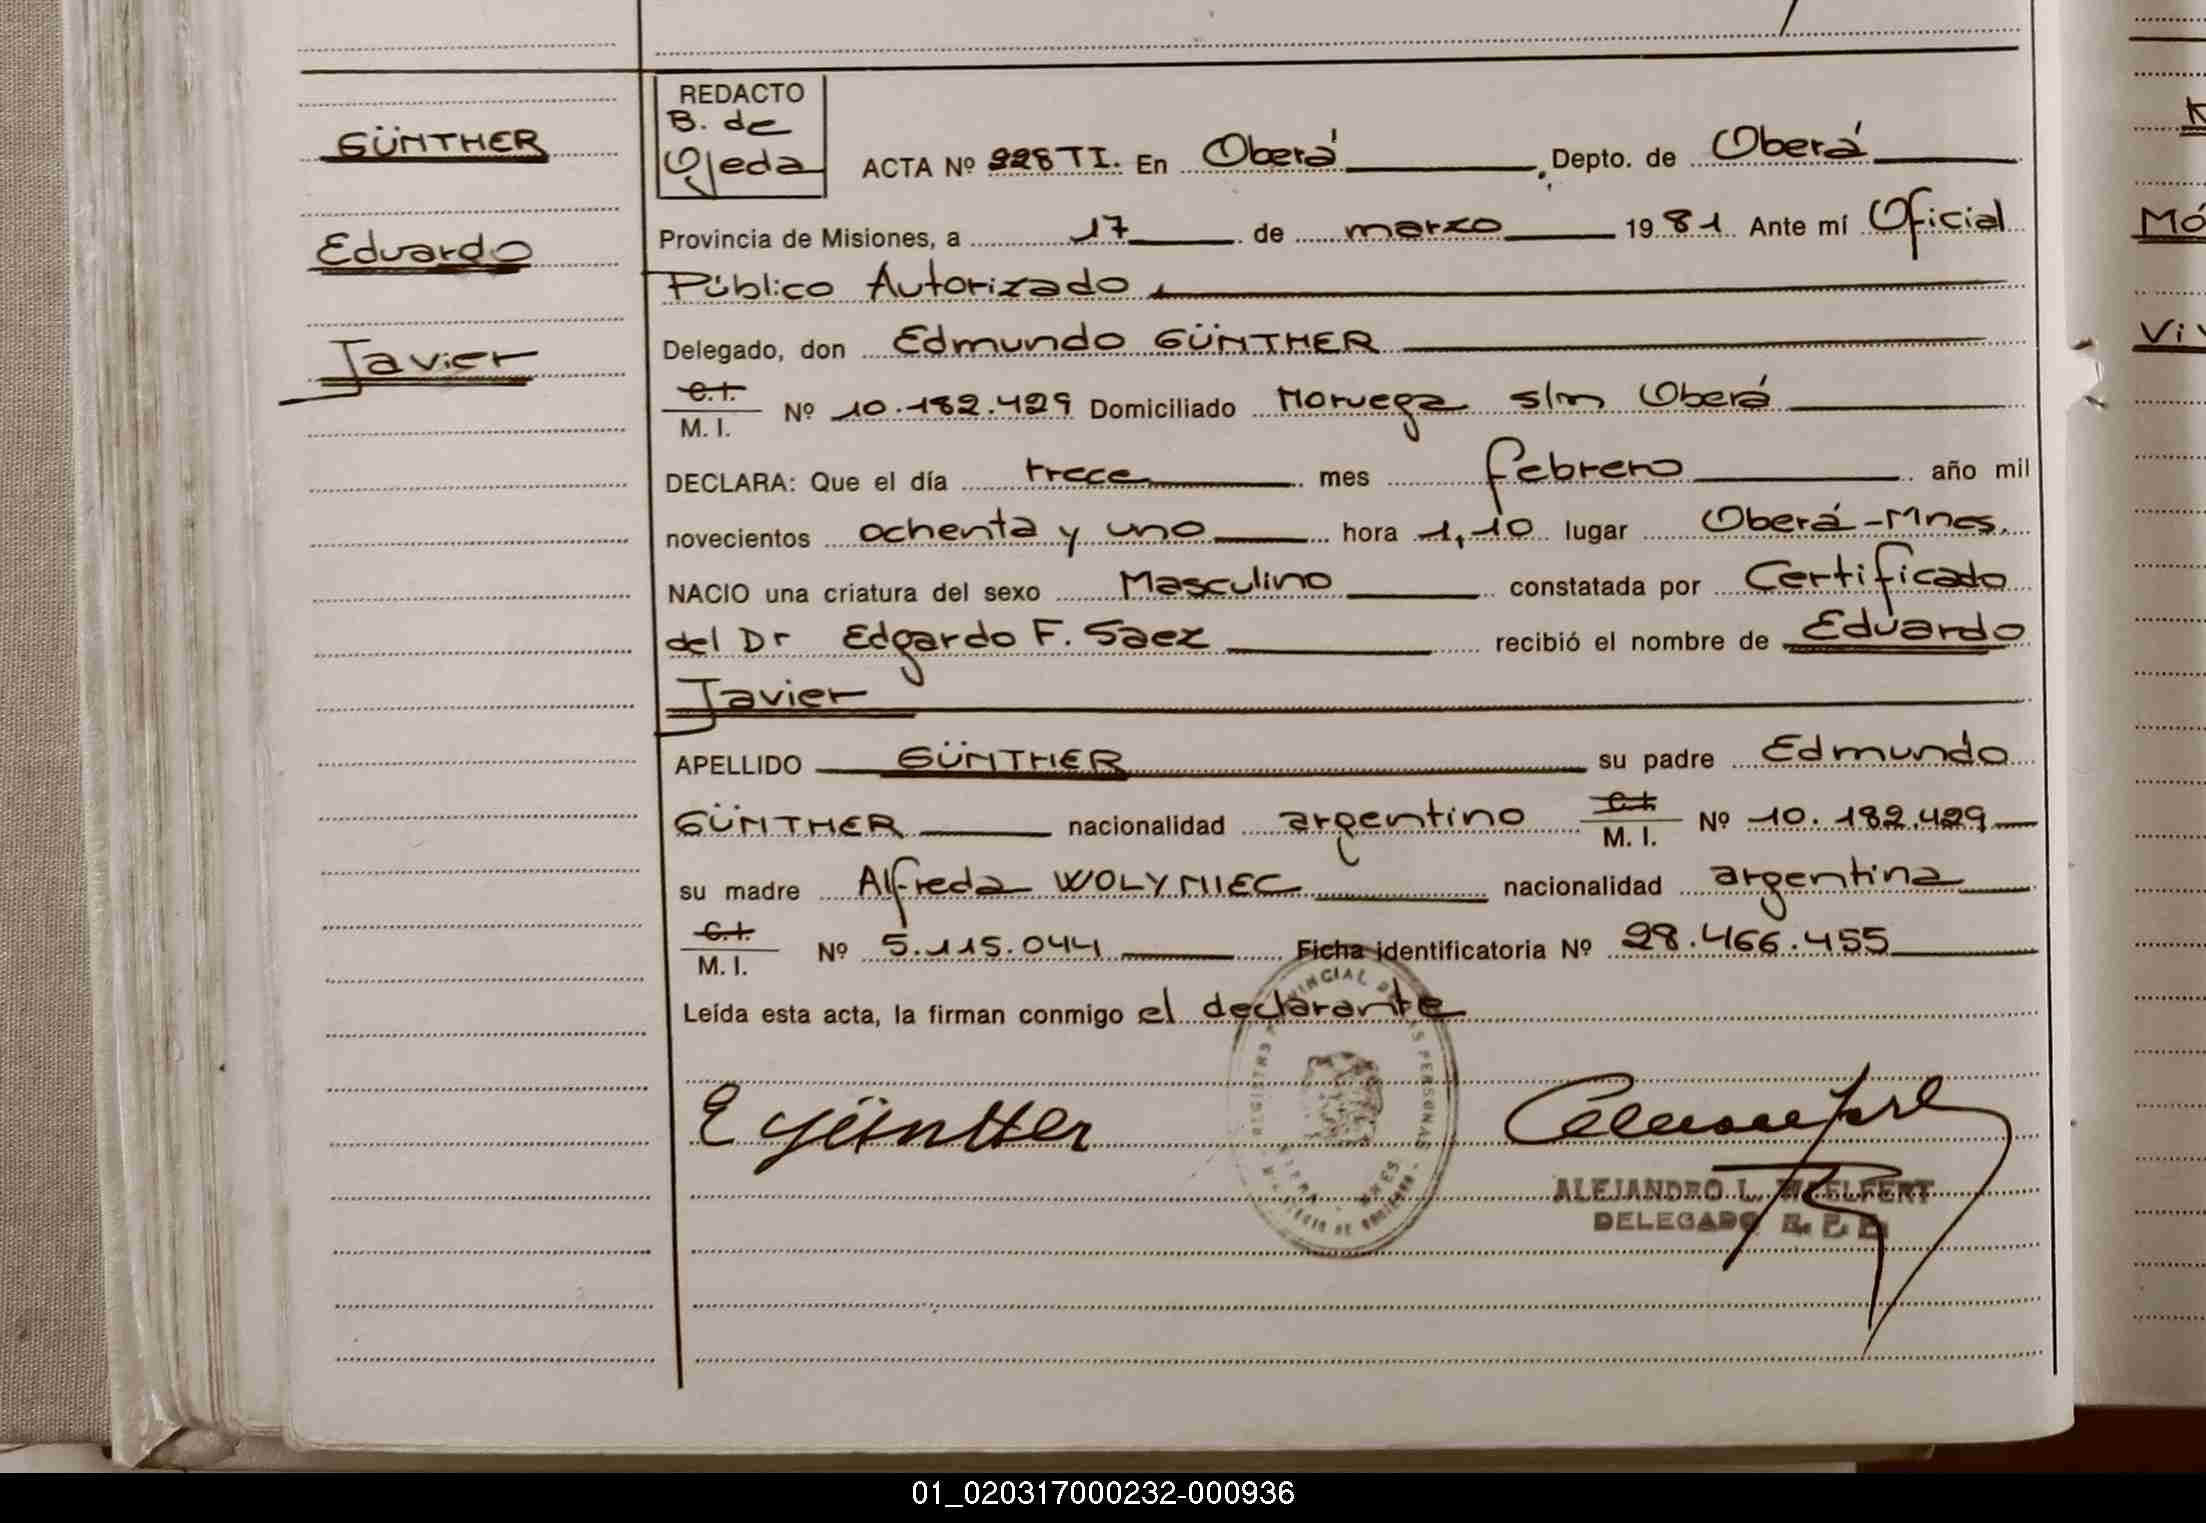 GÜNTHER
Eduardo
Javier
REDACTO
B. de
Ojeda
ACTA Nº 228 TI. En Oberá, Depto. de Oberá
Provincia de Misiones, a 17 de marzo 1981 Ante mí Oficial
Público Autorizado
Delegado, don Edmundo GÜNTHER
C.I.
M. I. Nº 10.182.429 Domiciliado Noruega s/n Oberá
DECLARA: Que el día trece mes febrero año mil
novecientos ochenta y uno hora 1,10 lugar Oberá-Mnes.
NACIO una criatura del sexo Masculino constatada por Certificado
del Dr Edgardo F. Saez recibió el nombre de Eduardo
Javier
APELLIDO GÜNTHER su padre Edmundo
GÜNTHER nacionalidad argentino C.I. M. I. Nº 10.182.429
su madre Alfreda WOLYNIEC nacionalidad argentina
C.I.
M. I. Nº 5.115.044 Ficha identificatoria Nº 28.466.455
Leída esta acta, la firman conmigo el declarante
E Günther
ALEJANDRO L.
DELEGADO
Mó
Vi
01_020317000232-000936